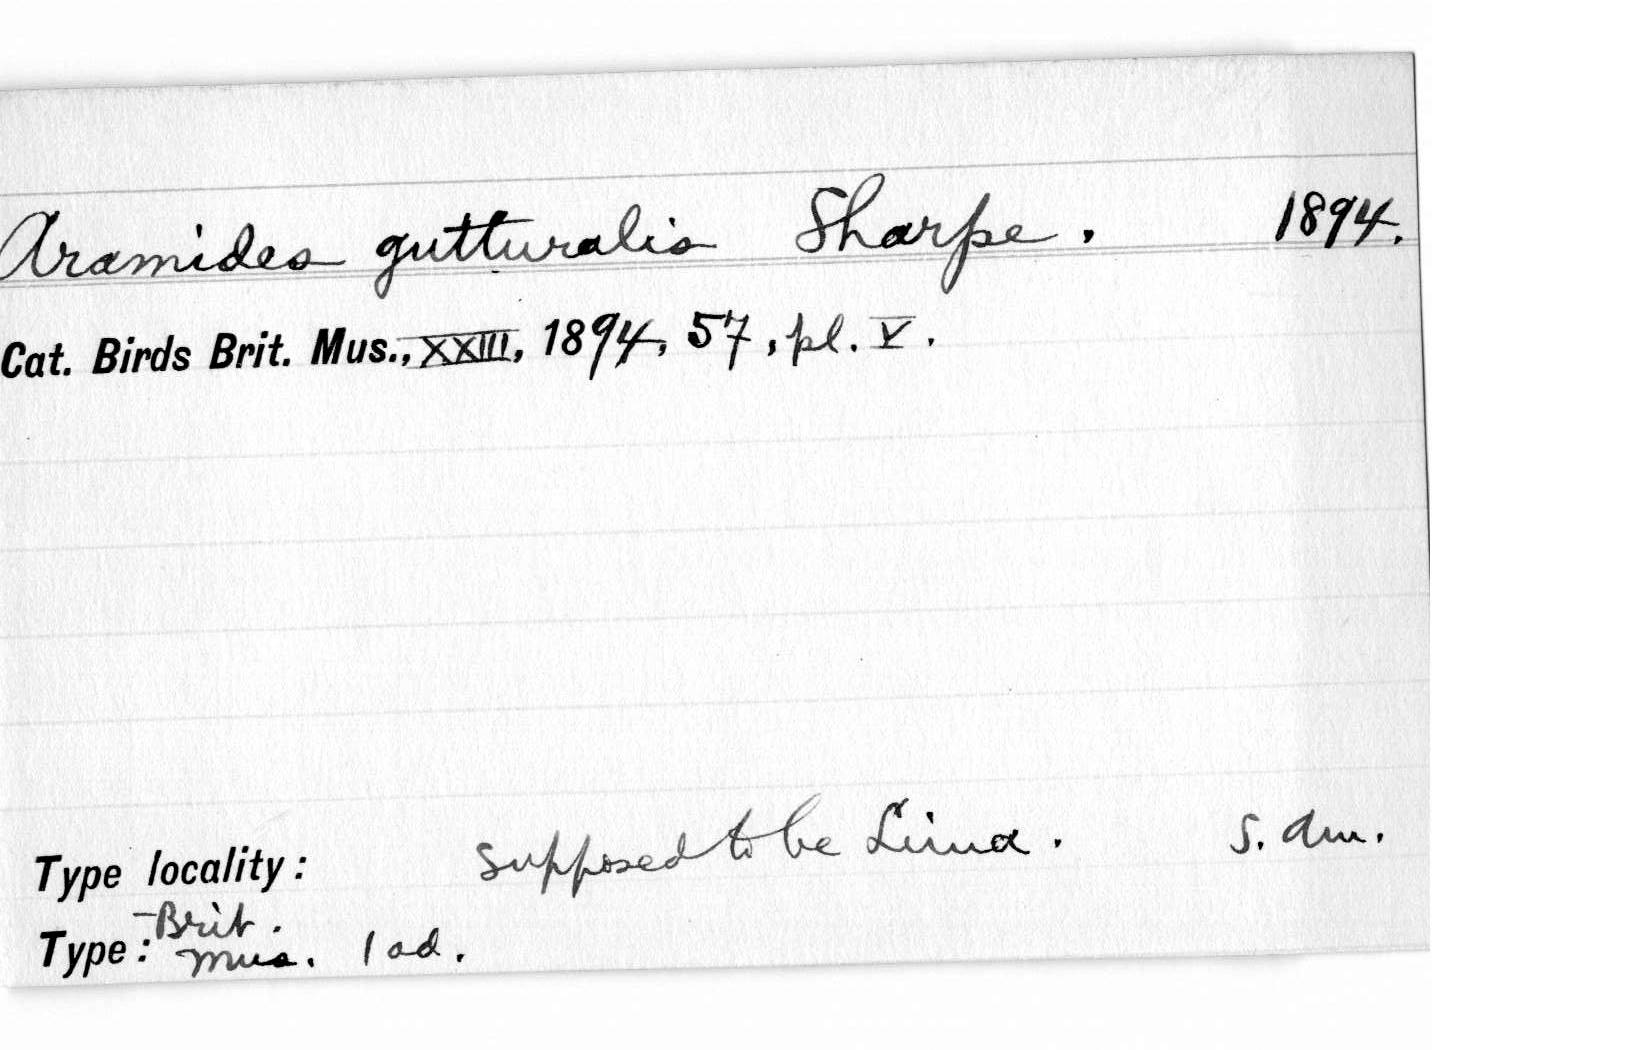 Aramides gutturalis Sharpe. 1894.
Cat. Birds Brit. Mus., XXIII, 1894, 57, pl. V.
Type locality: supposed to be Lima. S. Am.
Brit.
Type: Mus. 1 ad.